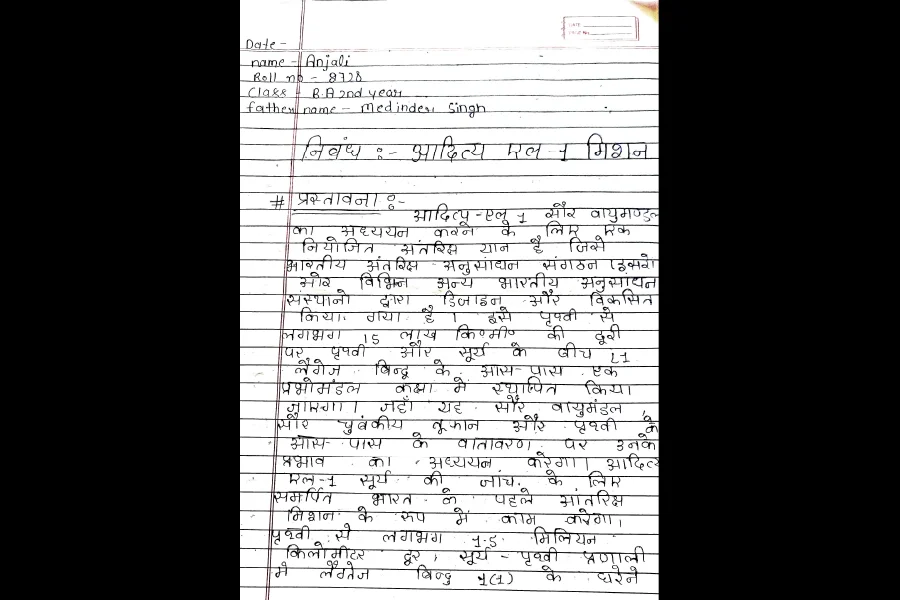 DATE
PAGE No.
Date -
name - Anjali
Roll no - 8728
Class - B.A 2nd year
father name - Medinder Singh
निबंध :- आदित्य एल -1 मिशन
# प्रस्तावना :-
आदित्य -एल 1 सौर वायुमण्डल
का अध्ययन करने के लिए एक
नियोजित अंतरिक्ष यान है जिसे
भारतीय अंतरिक्ष -अनुसांधान संगठन (इसरो
और विभिन्न अन्य भारतीय अनुसांधान
संस्थानो द्वारा डिजाइन और विकसित
किया गया है । इसे पृथ्वी से
लगभग 15 लाख कि॰मी॰ की दूरी
पर पृथ्वी और सूर्य के बीच L1
लैंगेज बिन्दु के आस-पास एक
प्रभोमंडल कक्षा में स्थापित किया
जाएगा । जहाँ यह सौर वायुमंडल ,
सौर चुबंकीय तूफान और पृथ्वी के
आस-पास के वातावरण पर उनके
प्रभाव का अध्ययन करेगा । आदित्य
एल-1 सूर्य की जांच के लिए
समर्पित भारत के पहले आंतरिक्ष
मिशन के रुप में काम करेगा ,
पृथ्वी से लगभग 1.5 मिलियन
किलोमीटर दूर , सूर्य - पृथ्वी प्रणाली
में लैंगेज बिन्दु 1(1) के घेरेने